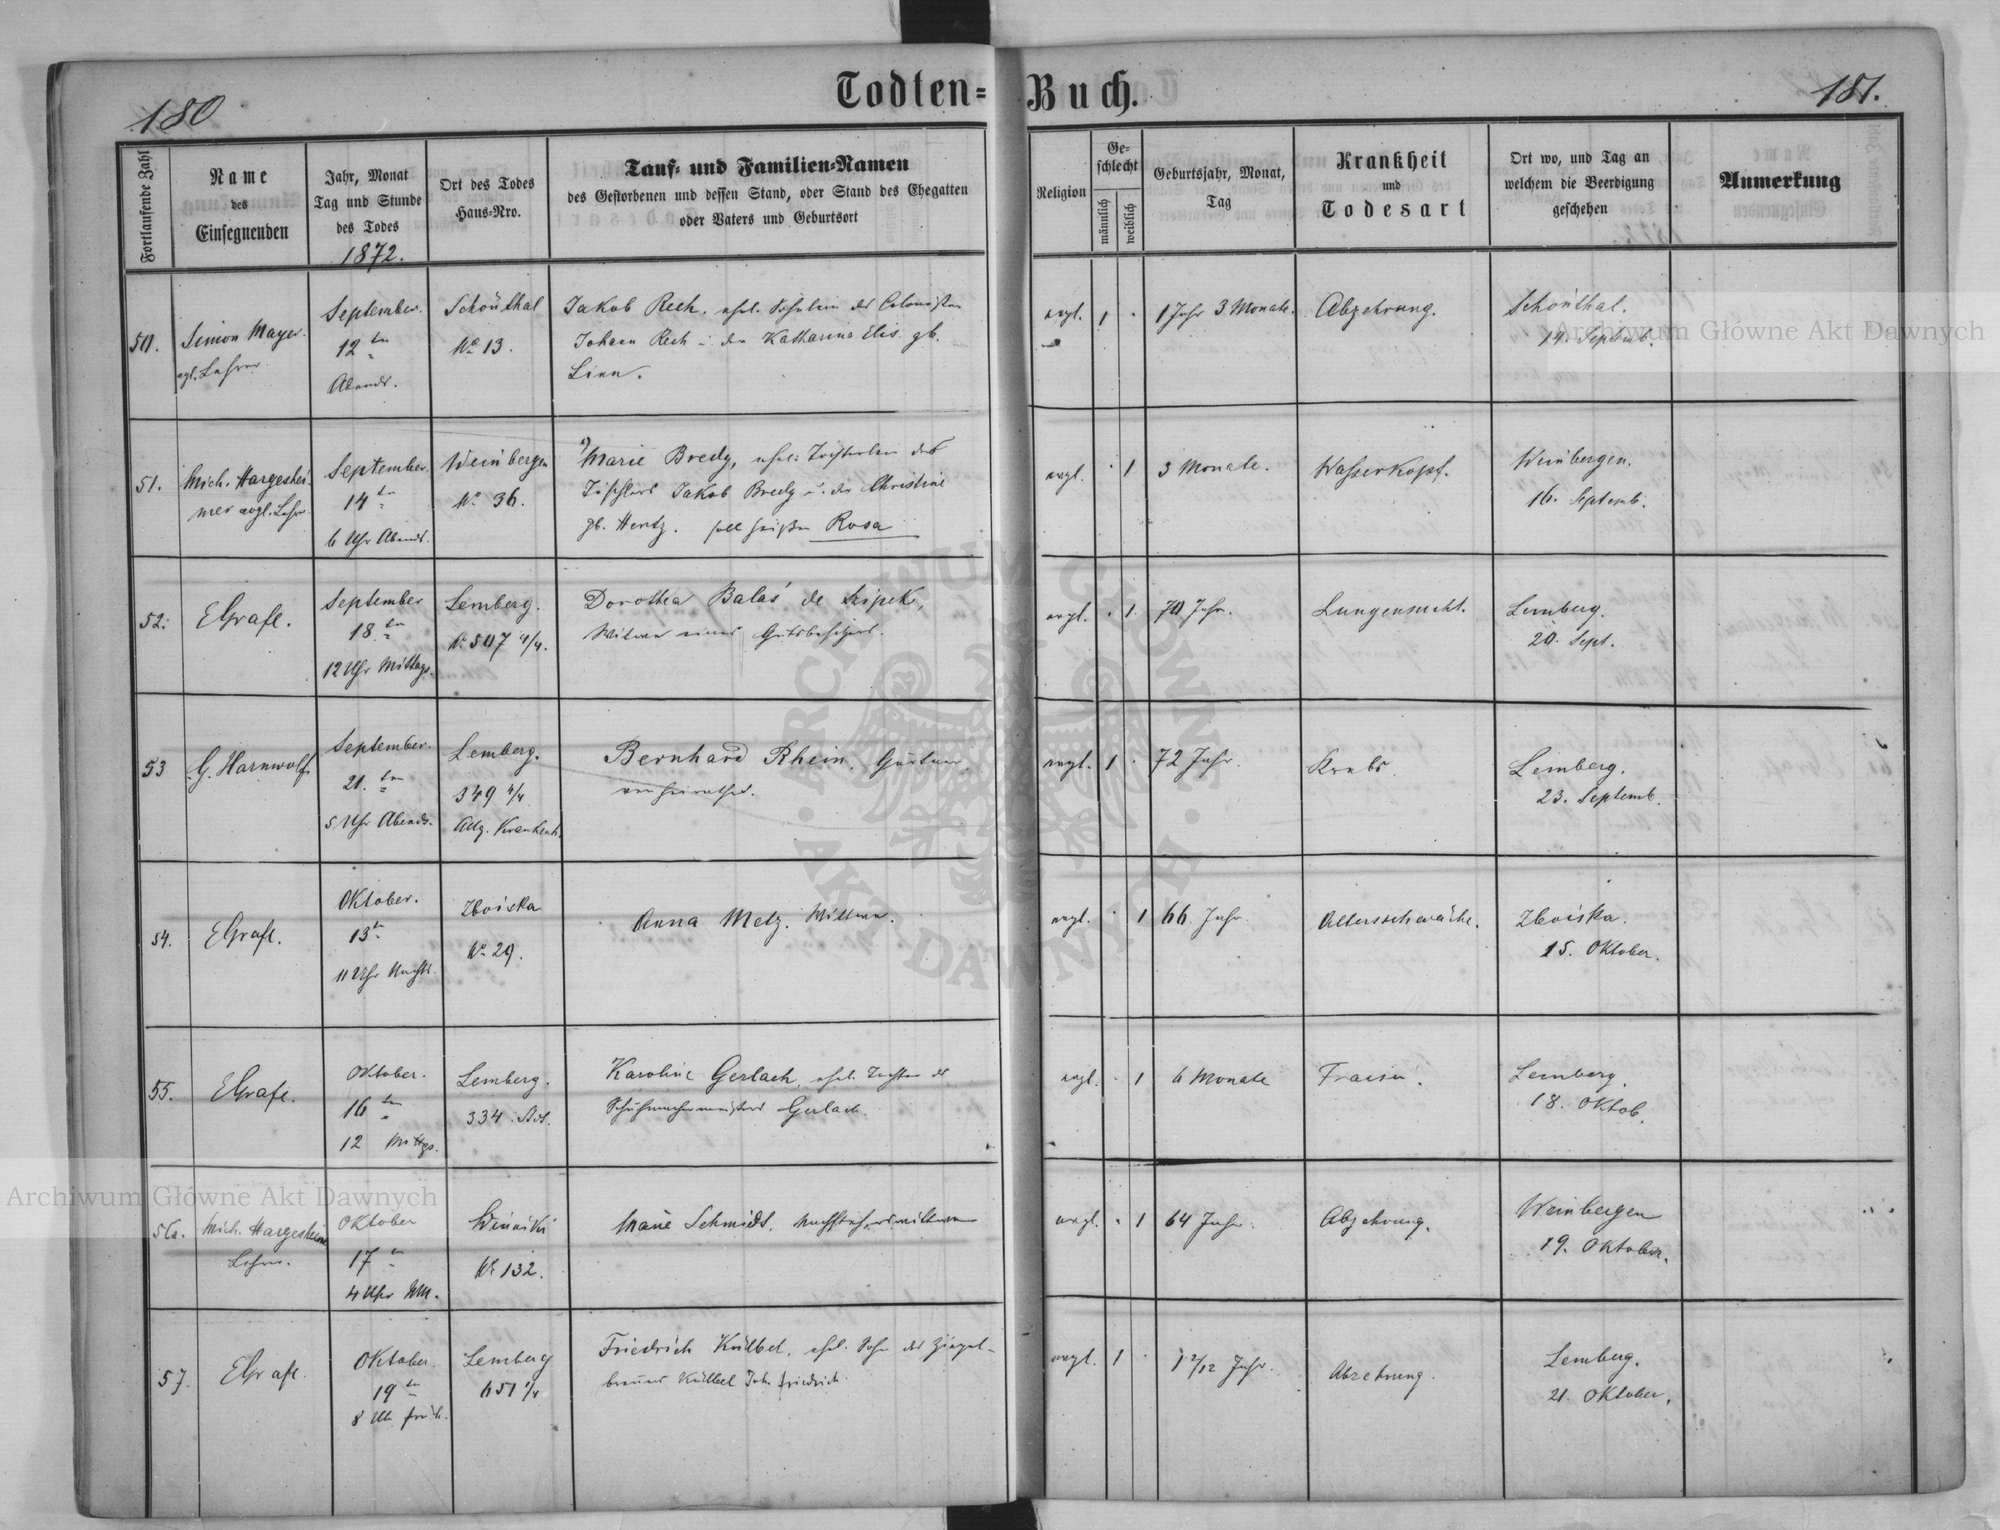 Todten=Buch.
180
181.
Fortlaufende Zahl
Name
des
Einsegnenden
Jahr, Monat
Tag und Stunde
des Todes
1872.
Ort des Todes
Haus=Nro.
Tauf= und Familien=Namen
des Gestorbenen und dessen Stand, oder Stand des Ehegatten
oder Vaters und Geburtsort
Religion
Ge=
schlecht
männlich
weiblich
Geburtsjahr, Monat,
Tag
Krankheit
und
Todesart
Ort wo, und Tag an
welchem die Beerdigung
geschehen
Anmerkung
50.
Simon Mayer.
evgl. Lehrer.
September.
12 ten
Abends.
Schönthal
No 13.
Jakob Rech, ehel. Söhnlein des Colonisten
Johann Rech u. der Katharina Elis. gb.
Linn.
evgl.
1
1 Jahr 3 Monate.
Abzehrung.
Schönthal.
14. Septemb.
51.
Mich. Hargeshei-
mer evgl. Lehrer
September.
14 ten
6 Uhr Abends.
Weinbergen
No 36.
Marie Bredy, ehel. Töchterlein des
Tischlers Jakob Bredy u. der Christine
gb. Hertz. soll heißen Rosa
evgl.
1
3 Monate.
Wasserkopf.
Weinbergen.
16. Septemb.
52.
EGrafl.
September
18. ten
12 Uhr Mittags.
Lemberg.
No 507 4/4.
Dorothea Balas de
Witwe eines Gutsbesitzers.
evgl.
1.
70 Jahr.
Lungensucht.
Lemberg.
20. Sept.
53
G. Harnwolf.
September.
21. ten
5 Uhr Abends.
Lemberg.
349 4/4
Allg. Krankenh.
Bernhard Rhein, Gärtner,
verheirathet.
evgl.
1
72 Jahr.
Krebs.
Lemberg.
23. Septemb.
54.
EGrafl.
Oktober.
13 ten
11 Uhr Nachts
Zboiska
No 29.
Anna Metz. Wittwe.
evgl.
1
66. Jahr.
Altersschwäche.
Zboiska.
15. Oktober.
55.
EGrafl.
Oktober.
16 ten
12 Mittgs.
Lemberg.
334
Karoline Gerlach, ehel. Tochter des
Schuhmachermeisters Gerlach.
evgl.
1
6 Monate
Fraisen.
Lemberg.
18. Oktob.
56.
Mich. Hargesheimer
Lehrer.
Oktober
17 ten
4 Uhr NM.
Winniki
No 132.
Marie Schmidt,
evgl.
1
64 Jahr.
Abzehrung.
Weinbergen
19. Oktober.
57.
EGrafl.
Oktober.
19 ten
8 Uhr früh.
Lemberg
651 1/4
Friedrich Külbel, ehel. Sohn des Ziegel-
brenners Külbel Joh. Friedrich.
evgl.
1
1 2/12 Jahr.
Abzehrung.
Lemberg.
21. Oktober.
Archiwum Główne Akt Dawnych
Archiwum Główne Akt Dawnych
ARCHIWUM GŁÓWNE
AKT DAWNYCH